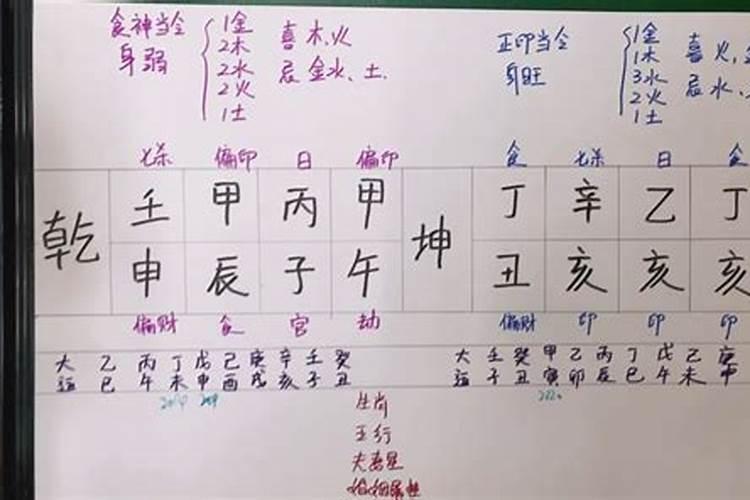 食神当令
身弱
1金
2木
2水
2火
1土
喜木.火
忌金水、土.
正印当令
身旺
1金
1木
3水
2火
1土
喜火,
忌水、
七杀 偏印 日 偏印
乾 壬 甲 丙 甲
申 辰 子 午
偏财 食 官 劫
食 七杀 日 食
坤 丁 辛 乙 丁
丑 亥 亥 亥
偏财 印 印 印
大 乙 丙 丁 戊 己 庚 辛 壬 癸
运 巳 午 未 申 酉 戌 亥 子 丑
大 壬 癸 甲 乙 丙 丁 戊 己 庚
运 子 丑 寅 卯 辰 巳 午 未 申
生肖
五行
夫妻星